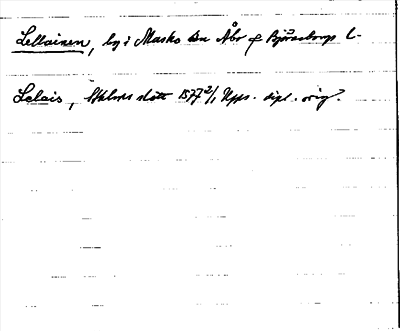 Lellainen, by i Masko sn Åbo o Björneborgs l.
Lelais, Sthlms slott 1577 2/1 Upps. dipl. orig.